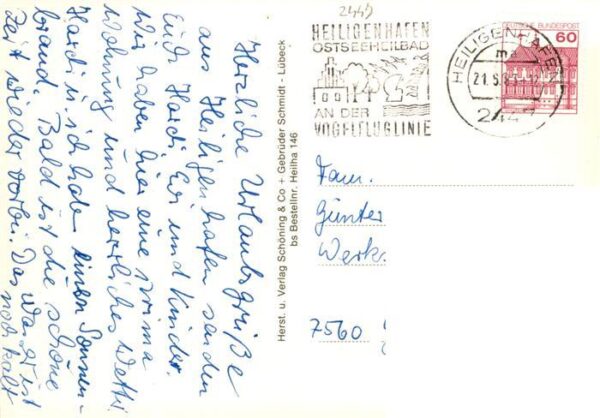 Herzliche Urlaubsgrüße
aus Heiligenhafen senden
Euch Hardi, Evi und Kinder.
Wir haben hier eine prima
Wohnung und herrliches Wetter.
Hardi u. ich haben einen Sonnen-
brand. Bald ist die schöne
Zeit wieder vorbei. Das Wasser ist
noch kalt
Herst. u. Verlag Schöning & Co + Gebrüder Schmidt - Lübeck
bs Bestellnr. Heilha 146
2447
HEILIGENHAFEN
OSTSEEHEILBAD
AN DER
VOGELFLUGLINIE
HEILIGENHAFEN
ma
21.5.
2447
DEUTSCHE BUNDESPOST
60
Fam.
Günter
Werk.
7560